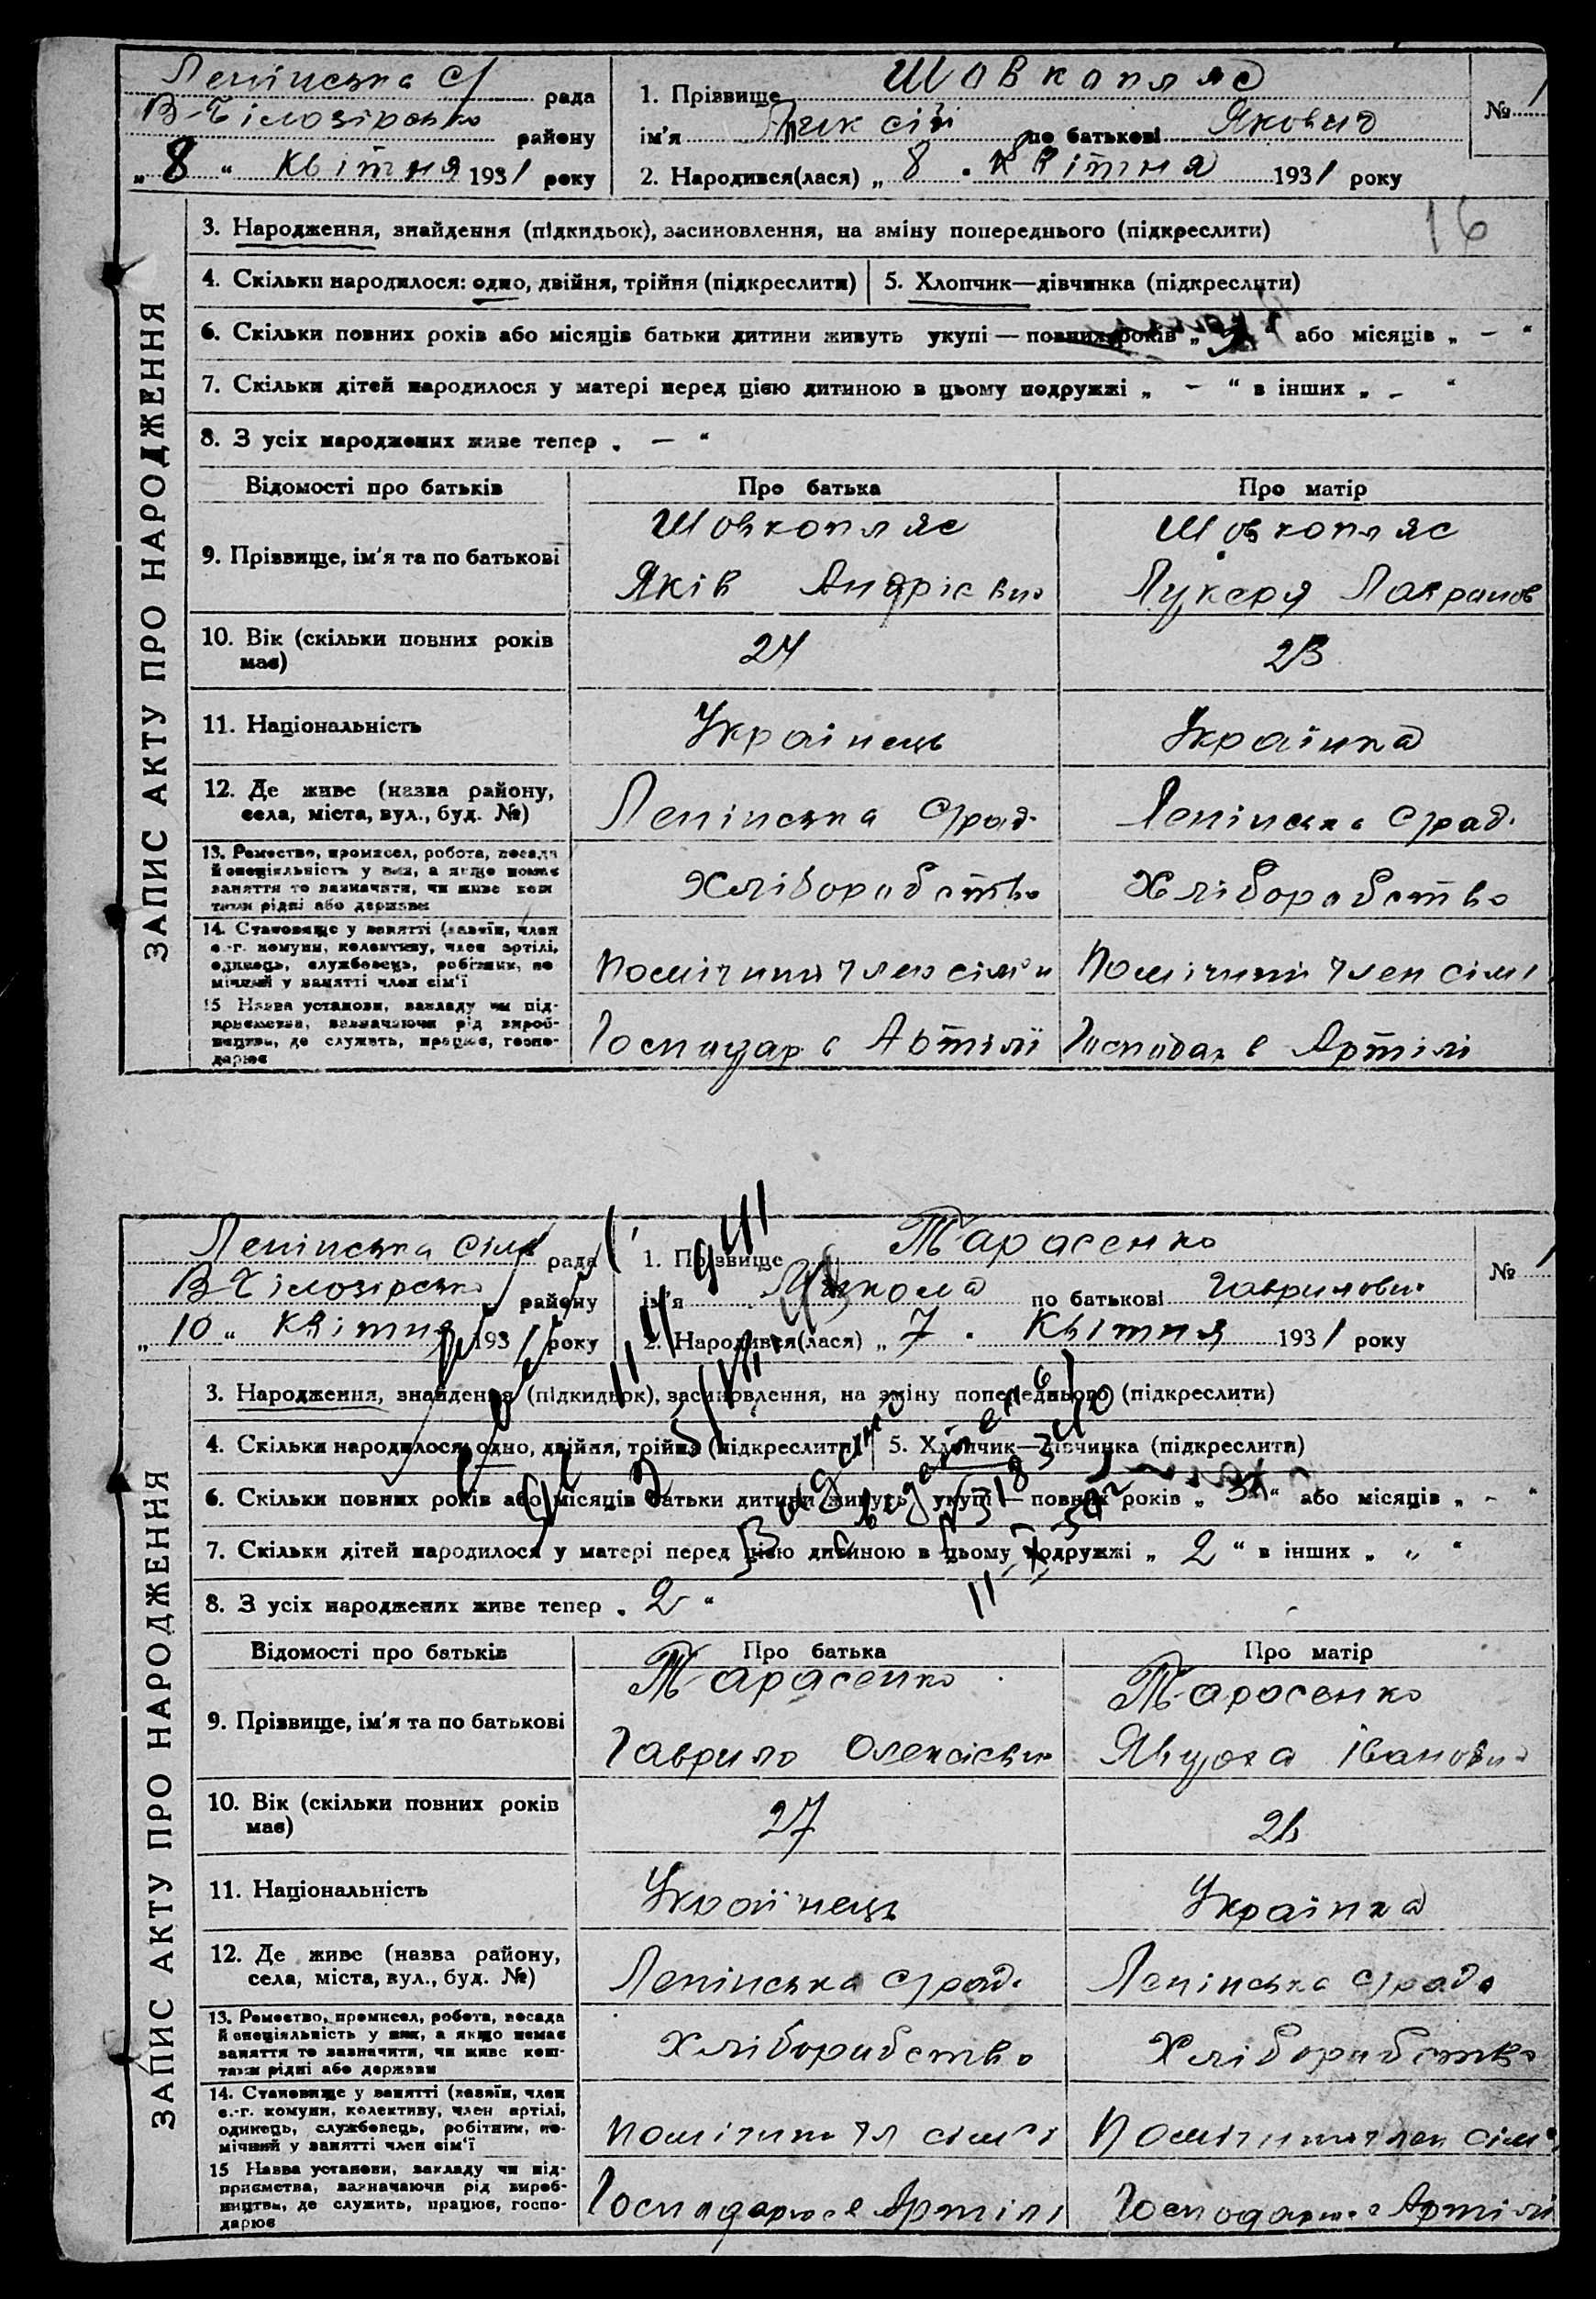 Ленінська с/ рада
В-Білозірсько району
„ 8 “ Квітня 1931 року
1. Прізвище Шовкопляс
ім'я по батькові Якович
2. Народився(лася) „ 8 . Квітня 1931 року
№ 1
16
3. Народження, знайдення (підкидьок), засиновлення, на зміну попереднього (підкреслити)
4. Скільки народилося: одно, двійня, трійня (підкреслити)
5. Хлопчик—дівчинка (підкреслити)
6. Скільки повних років або місяців батьки дитини живуть укупі — повних років „ “ або місяців „ – “
7. Скільки дітей народилося у матері перед цією дитиною в цьому подружжі „ – “ в інших „ – “
8. З усіх народжених живе тепер „ — “
ЗАПИС АКТУ ПРО НАРОДЖЕННЯ
Відомості про батьків
Про батька
Про матір
9. Прізвище, ім'я та по батькові
Шовкопляс
Яків Андрієвич
Шовкопляс
Лукеря
10. Вік (скільки повних років
має)
24
23
11. Національність
Українець
Українка
12. Де живе (назва району,
села, міста, вул., буд. №)
Ленінська с/рад.
Ленінська с/рад.
13. Ремество, промисел, робота, посада
й спеціяльність у них, а якщо немає
заняття то зазначити, чи живе кош
тами рідні або держави
Хліборобство
Хліборобство
14. Становище у занятті (хазяїн, член
с.-г. комуни, колективу, член артілі,
одинець, службовець, робітник, по
мічний у занятті член сім'ї
Помічний член сім'и
Помічний член сімї
15 Назва установи, закладу чи під-
приємства, зазначаючи рід вироб-
ництва, де служить, працює, госпо-
дарює
Господар в Артілі
Господар в Артілі
Ленінська Сіль рада
В-Білозірсько району
„ 10 “ Квітня 1931 року
1. Прізвище Тарасенко
ім'я Микола по батькові Гаврилович
2. Народився(лася) „ 7 . Квітня 1931 року
№ 1
3. Народження, знайдення (підкидьок), засиновлення, на зміну попереднього (підкреслити)
4. Скільки народилося: одно, двійня, трійня (підкреслити)
5. Хлопчик—дівчинка (підкреслити)
6. Скільки повних років або місяців батьки дитини живуть укупі — повних років „ “ або місяців „ – “
7. Скільки дітей народилося у матері перед цією дитиною в цьому подружжі „ 2 “ в інших „ “
8. З усіх народжених живе тепер „ 2 “
ЗАПИС АКТУ ПРО НАРОДЖЕННЯ
Відомості про батьків
Про батька
Про матір
9. Прізвище, ім'я та по батькові
Тарасенко
Гаврило Олексієвич
Тарасенко
10. Вік (скільки повних років
має)
27
11. Національність
Українець
Українка
12. Де живе (назва району,
села, міста, вул., буд. №)
Ленінська с/рад.
Ленінська с/рада
13. Ремество, промисел, робота, посада
й спеціяльність у них, а якщо немає
заняття то зазначити, чи живе кош-
тами рідні або держави
Хліборобство
Хліборобство
14. Становище у занятті (хазяїн, член
с.-г. комуни, колективу, член артілі,
одинець, службовець, робітник, по-
мічний у занятті член сім'ї
Помічни чл сім'ї
Помічний член сім'
15 Назва установи, закладу чи під-
приємства, зазначаючи рід вироб-
ництва, де служить, працює, госпо-
дарює
Господарює в Артілі
Господарює в Артілі